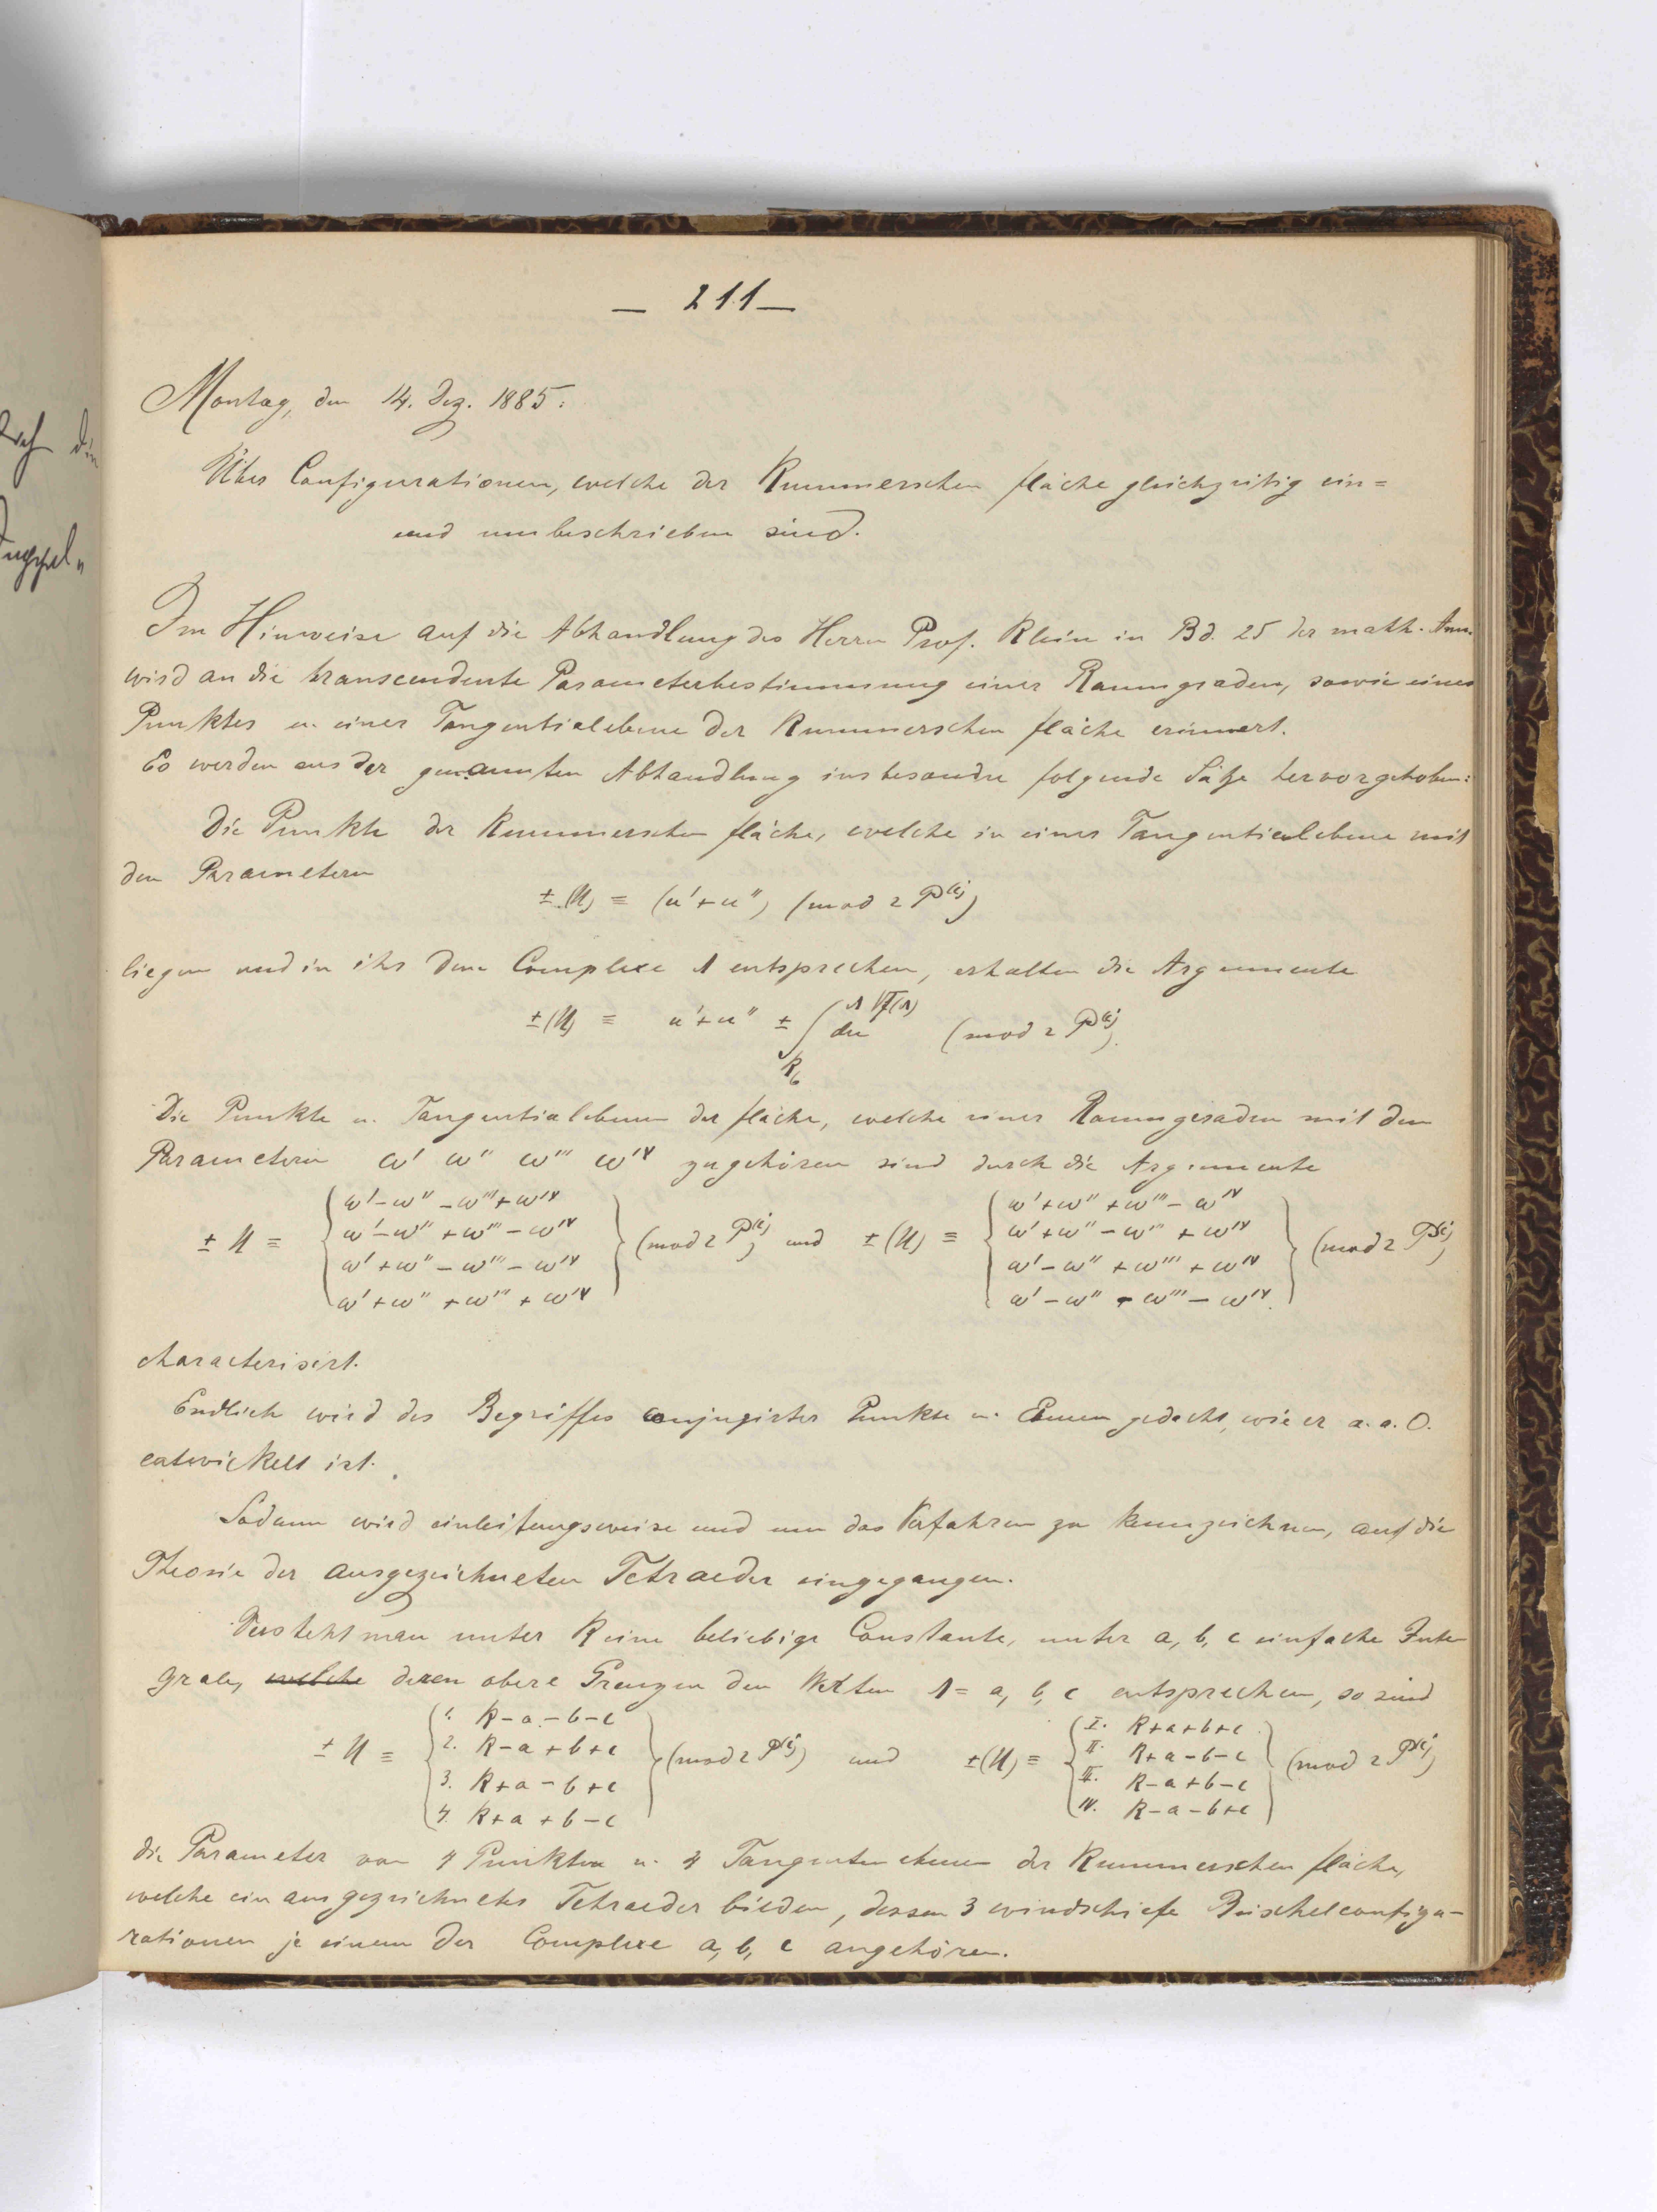 — 211 —
Montag, den 14. Dez. 1885:
Über Configurationen, welche der Kummerschen Fläche gleichzeitig ein=
und umbeschrieben sind.
Im Hinweise auf die Abhandlung des Herrn Prof. Klein in Bd. 25 der math. Ann.
wird an die transcendente Parameterbestimmung einer Raumgraden, sowie eines
Punktes u. einer Tangentialebene der Kummerschen Fläche erinnert.
Es werden aus der genannten Abhandlung insbesondre folgende Sätze hervorgehoben:
Die Punkte der Kummerschen Fläche, welche in einer Tangentialebene mit
den Parametern
± (U) ≡ (u' + u'') (mod 2 P^(i))
liegen und in ihr dem Complexe Λ entsprechen, erhalten die Argumente
± (U) ≡ u' + u'' ± ∫_{k_6}^{Λ √f(Λ)} du (mod 2 P^(i)).
Die Punkte u. Tangentialebenen der Fläche, welche einer Raumgeraden mit den
Parametern ω' ω'' ω''' ω^IV zugehören sind durch die Argumente
± U ≡ { ω' − ω'' − ω''' + ω^IV
ω' − ω'' + ω''' − ω^IV
ω' + ω'' − ω''' − ω^IV
ω' + ω'' + ω''' + ω^IV } (mod 2 P^(i)) und ± (U) ≡ { ω' + ω'' + ω''' − ω^IV
ω' + ω'' − ω''' + ω^IV
ω' − ω'' + ω''' + ω^IV
ω' − ω'' − ω''' − ω^IV } (mod 2 P^(i))
characterisirt.
Endlich wird des Begriffes conjugirter Punkte u. Ebenen gedacht, wie er a. a. O.
entwickelt ist.
Sodann wird einleitungsweise und um das Verfahren zu kennzeichnen, auf die
Theorie der ausgezeichneten Tetraeder eingegangen.
Versteht man unter K eine beliebige Constante, unter a, b, c einfache Inte
grale, welche deren obere Grenzen den Werten Λ = a, b, c entsprechen, so sind
± U ≡ { 1. K − a − b − c
2. K − a + b + c
3. K + a − b + c
4. K + a + b − c } (mod 2 P^(i)) und ± (U) ≡ { I. K + a + b + c
II. K + a − b − c
III. K − a + b − c
IV. K − a − b + c } (mod 2 P^(i))
die Parameter von 4 Punkten u. 4 Tangentenebenen der Kummerschen Fläche,
welche ein ausgezeichnetes Tetraeder bilden, dessen 3 windschiefe Büschelconfigu-
rationen je einem der Complexe a, b, c angehören.